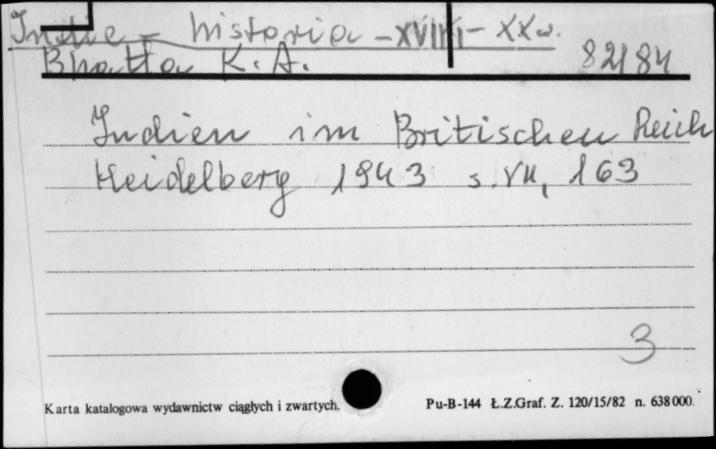 Indie - historia - XVIII - XX w.
Bhatta K. A. 82184
Indien im Britischen Reich
Heidelberg 1943 s. VII, 163
3
Karta katalogowa wydawnictw ciągłych i zwartych.
Pu-B-144 Ł.Z.Graf. Z. 120/15/82 n. 638000.